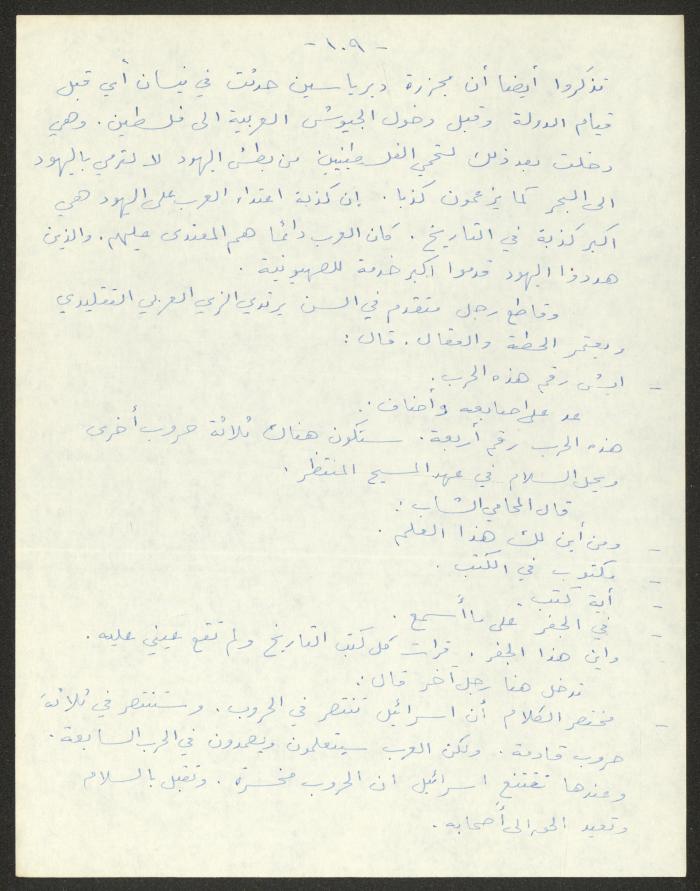 - ١٠٩ -
تذكروا أيضا أن مجزرة ديرياسين حدثت في نيسان أي قبل
قيام الدولة وقبل دخول الجيوش العربية الى فلسطين. وهي
دخلت بعد ذلك لتحمي الفلسطينيين من بطش اليهود لا لترمي باليهود
الى البحر كما يزعمون كذبا. إن كذبة اعتداء العرب على اليهود هي
اكبر كذبة في التاريخ. كان العرب دائما هم المعتدى عليهم. والذين
هددوا اليهود قدموا اكبر خدمة للصهيونية.
وقاطع رجل متقدم في السن يرتدي الزي العربي التقليدي
ويعتمر الحطة والعقال. قال:
- ايش رقم هذه الحرب.
عد على اصابعه وأضاف:
هذه الحرب رقم أربعة. ستكون هناك ثلاثة حروب أخرى
ويحل السلام في عهد المسيح المنتظر.
قال المحامي الشاب:
- ومن أين لك هذا العلم.
- مكتوب في الكتب.
- أية كتب
- في الجفر على ما أسمع.
واين هذا الجفر. قرات كل كتب التاريخ ولم تقع عيني عليه.
تدخل هنا رجل آخر قال:
- مختصر الكلام أن اسرائيل تنتصر في الحروب. وستنتصر في ثلاثة
حروب قادمة. ولكن العرب سيتعلمون ويصمدون في الحرب السابعة.
وعندها تقتنع اسرائيل ان الحروب مخسرة. وتقبل بالسلام
وتعيد الحق الى أصحابه.